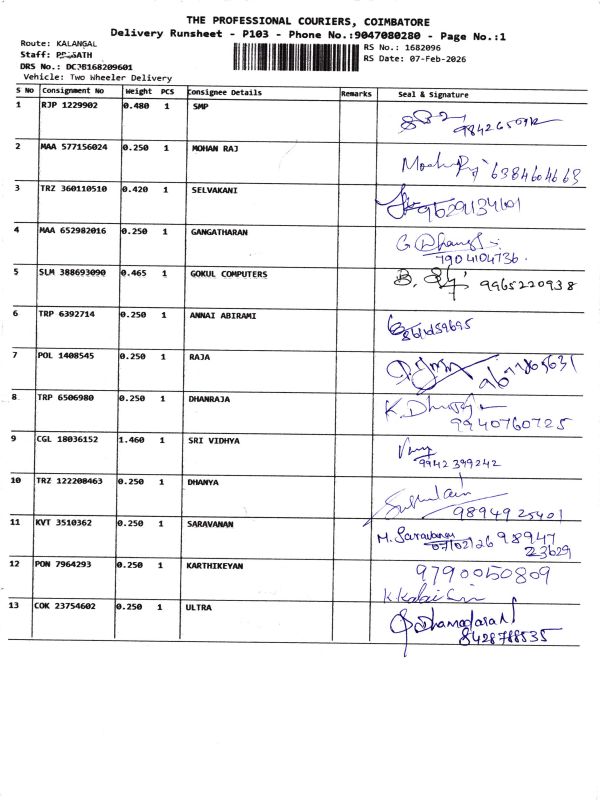 THE PROFESSIONAL COURIERS, COIMBATORE
Delivery Runsheet - P103 - Phone No.:9047080280 - Page No.:1
Route: KALANGAL
RS No.: 1682096
Staff:
RS Date: 07-Feb-2026
DRS No.:
Vehicle: Two Wheeler Delivery
S No Consignment No Weight PCS Consignee Details Remarks Seal & Signature
1 RJP 1229902 0.480 1 SMP
2 MAA 577156024 0.250 1 MOHAN RAJ 6384604663
3 TRZ 360110510 0.420 1 SELVAKANI 9629134101
4 MAA 652982016 0.250 1 GANGATHARAN 7904104736
5 SLM 388693090 0.465 1 GOKUL COMPUTERS 9965220938
6 TRP 6392714 0.250 1 ANNAI ABIRAMI
7 POL 1408545 0.250 1 RAJA
8 TRP 6506980 0.250 1 DHANRAJA 9940760725
9 CGL 18036152 1.460 1 SRI VIDHYA 9942399242
10 TRZ 122208463 0.250 1 DHANYA 9894925401
11 KVT 3510362 0.250 1 SARAVANAN M. Saravanan 98947
07/02/26 23629
12 PON 7964293 0.250 1 KARTHIKEYAN 9790050809
13 COK 23754602 0.250 1 ULTRA
8428788535